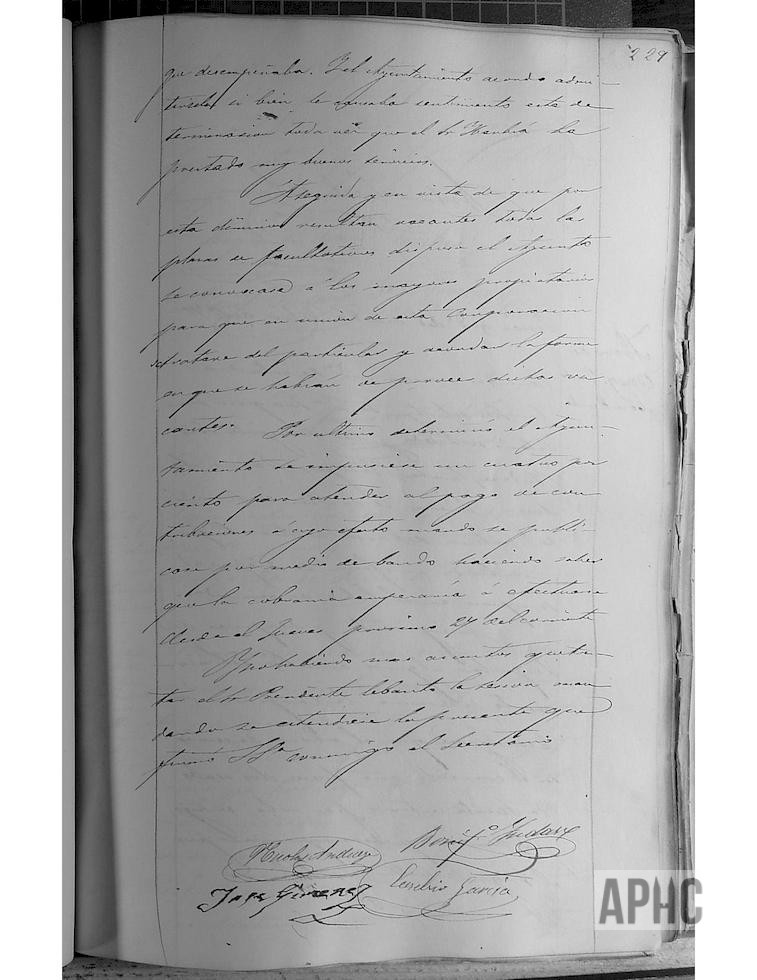 229
que desempeñaba. Y el Ayuntamiento acordo admi-
tirsela si bien le causaba sentimiento esta de
terminacion toda vez que el Sr ha
prestado muy buenos servicios.
Aseguida y en vista de que por
esta dimision resultan vacantes todas las
plazas de facultativos dispuso el Ayunto
se convocase á los mayores propietarios
para que en union de esta Corporacion
se tratare del particular y acordar la forma
en que se habian de proveer dichas va
cantes. Por ultimo determinó el Ayun-
tamiento se impusiese un cuatro por
ciento para atender al pago de con
tribuciones á cuyo efecto mando se publi-
case por medio de bando haciendo saber
que la cobranza empezaria á efectuarse
desde el Jueves proximo 27 del corriente
Y no habiendo mas asuntos que tra-
tar el Sr Presidente lebantó la sesion man
dando se estendiese la presente que
firmó SSa conmigo el Secretario
Jose Gimenez Eusebio Garcia
APHC